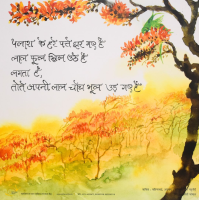 पलाश के हरे पत्ते झर गए हैं
लाल फूल खिल उठे हैं
लगता है,
तोते अपनी लाल चोंच भूल उड़ गए हैं